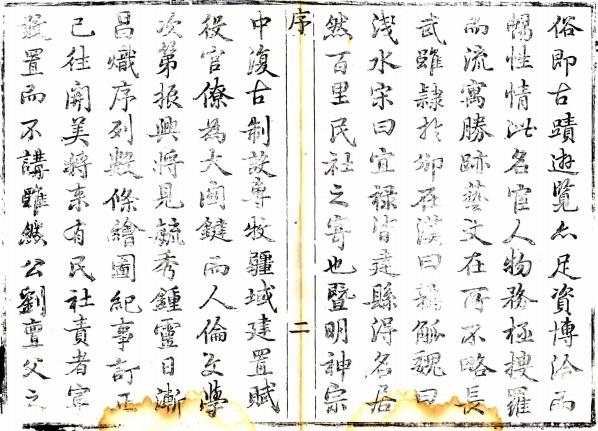 俗即古蹟遊覧亦足資博洽而
暢性情況名宦人物務極搜羅
而流寓勝跡藝文在所不略長
武雖隷於邠在漢曰鶉觚魏曰
淺水宋曰宜祿皆建縣得名居
然百里民社之寄也暨明神宗
序 二
中復古制設專牧疆域建置賦
役官僚為大関鍵而人倫文學
次第振興將見毓秀鍾靈日漸
昌熾序列數條繪圖紀事訂正
已往開美將來有民社責者寧
置而不講雖然公劉亶父之